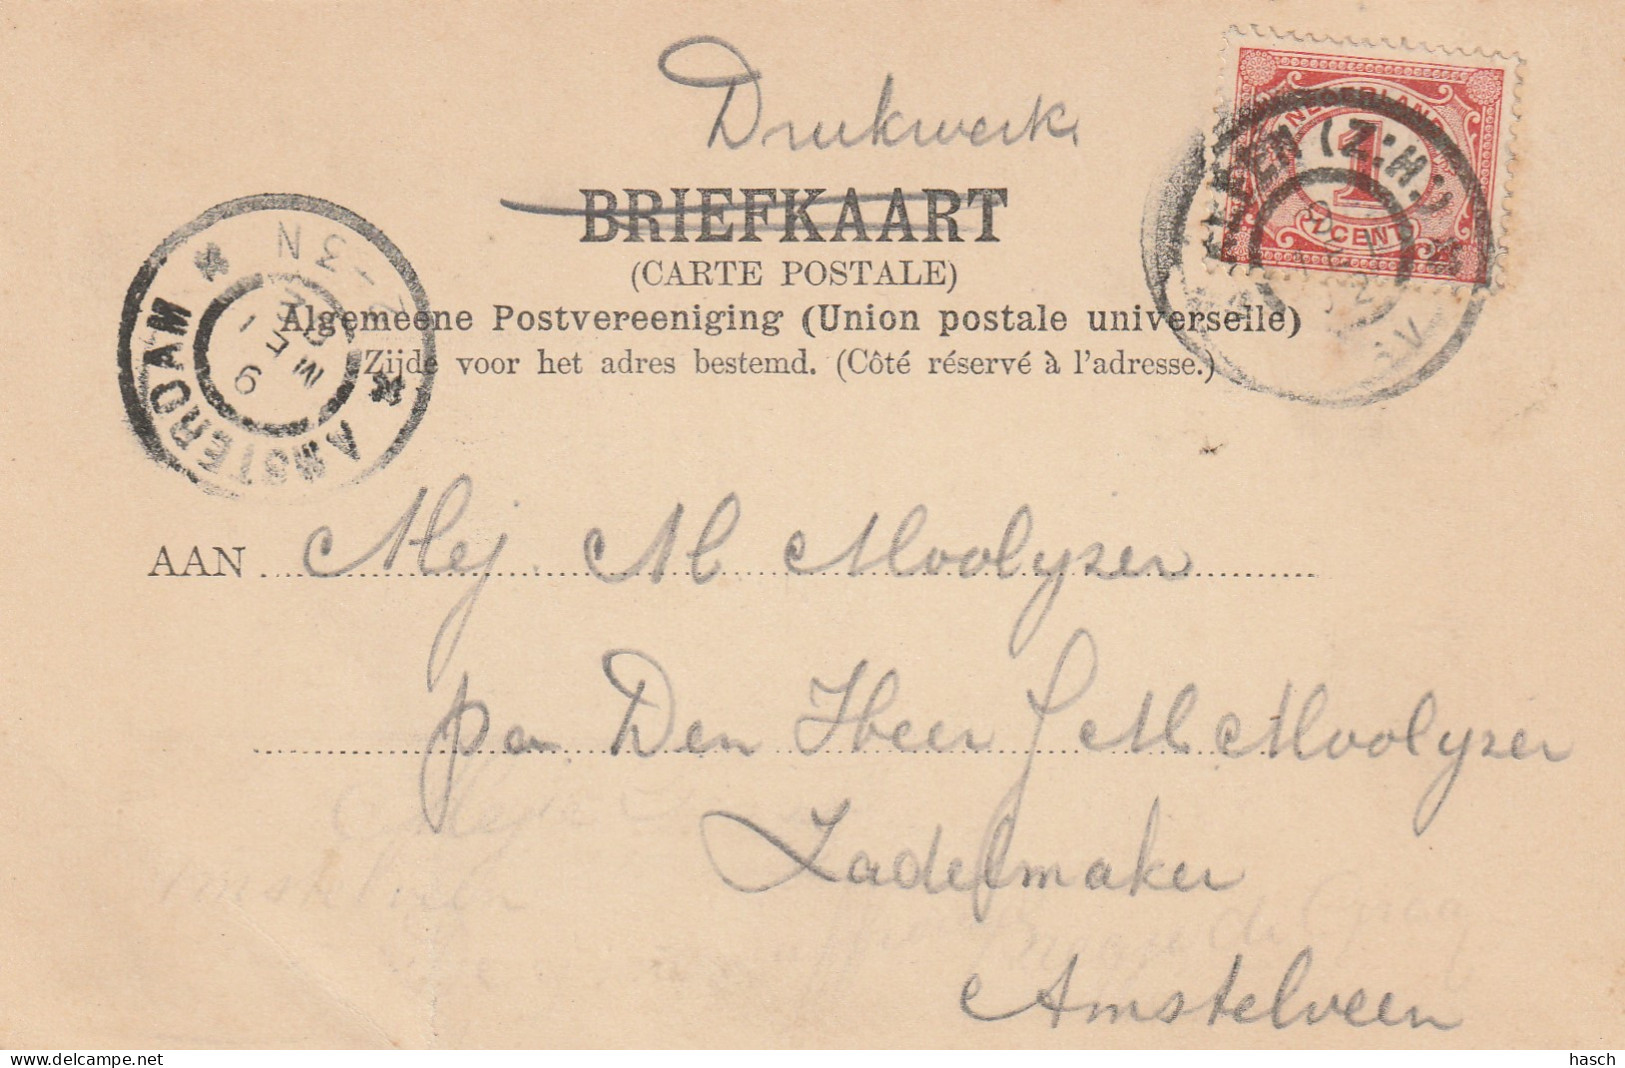 Drukwerk
NEDERLAND
1
CENT
(Z:H.)
BRIEFKAART
(CARTE POSTALE)
Algemeene Postvereeniging (Union postale universelle)
Zijde voor het adres bestemd. (Côté réservé à l'adresse.)
AMSTERDAM
2 - 3N
AAN Mej. M Moolyzer
pa Den Heer J M Moolyzer
Zadelmaker
Amstelveen
Amstelveen
www.delcampe.net
hasch